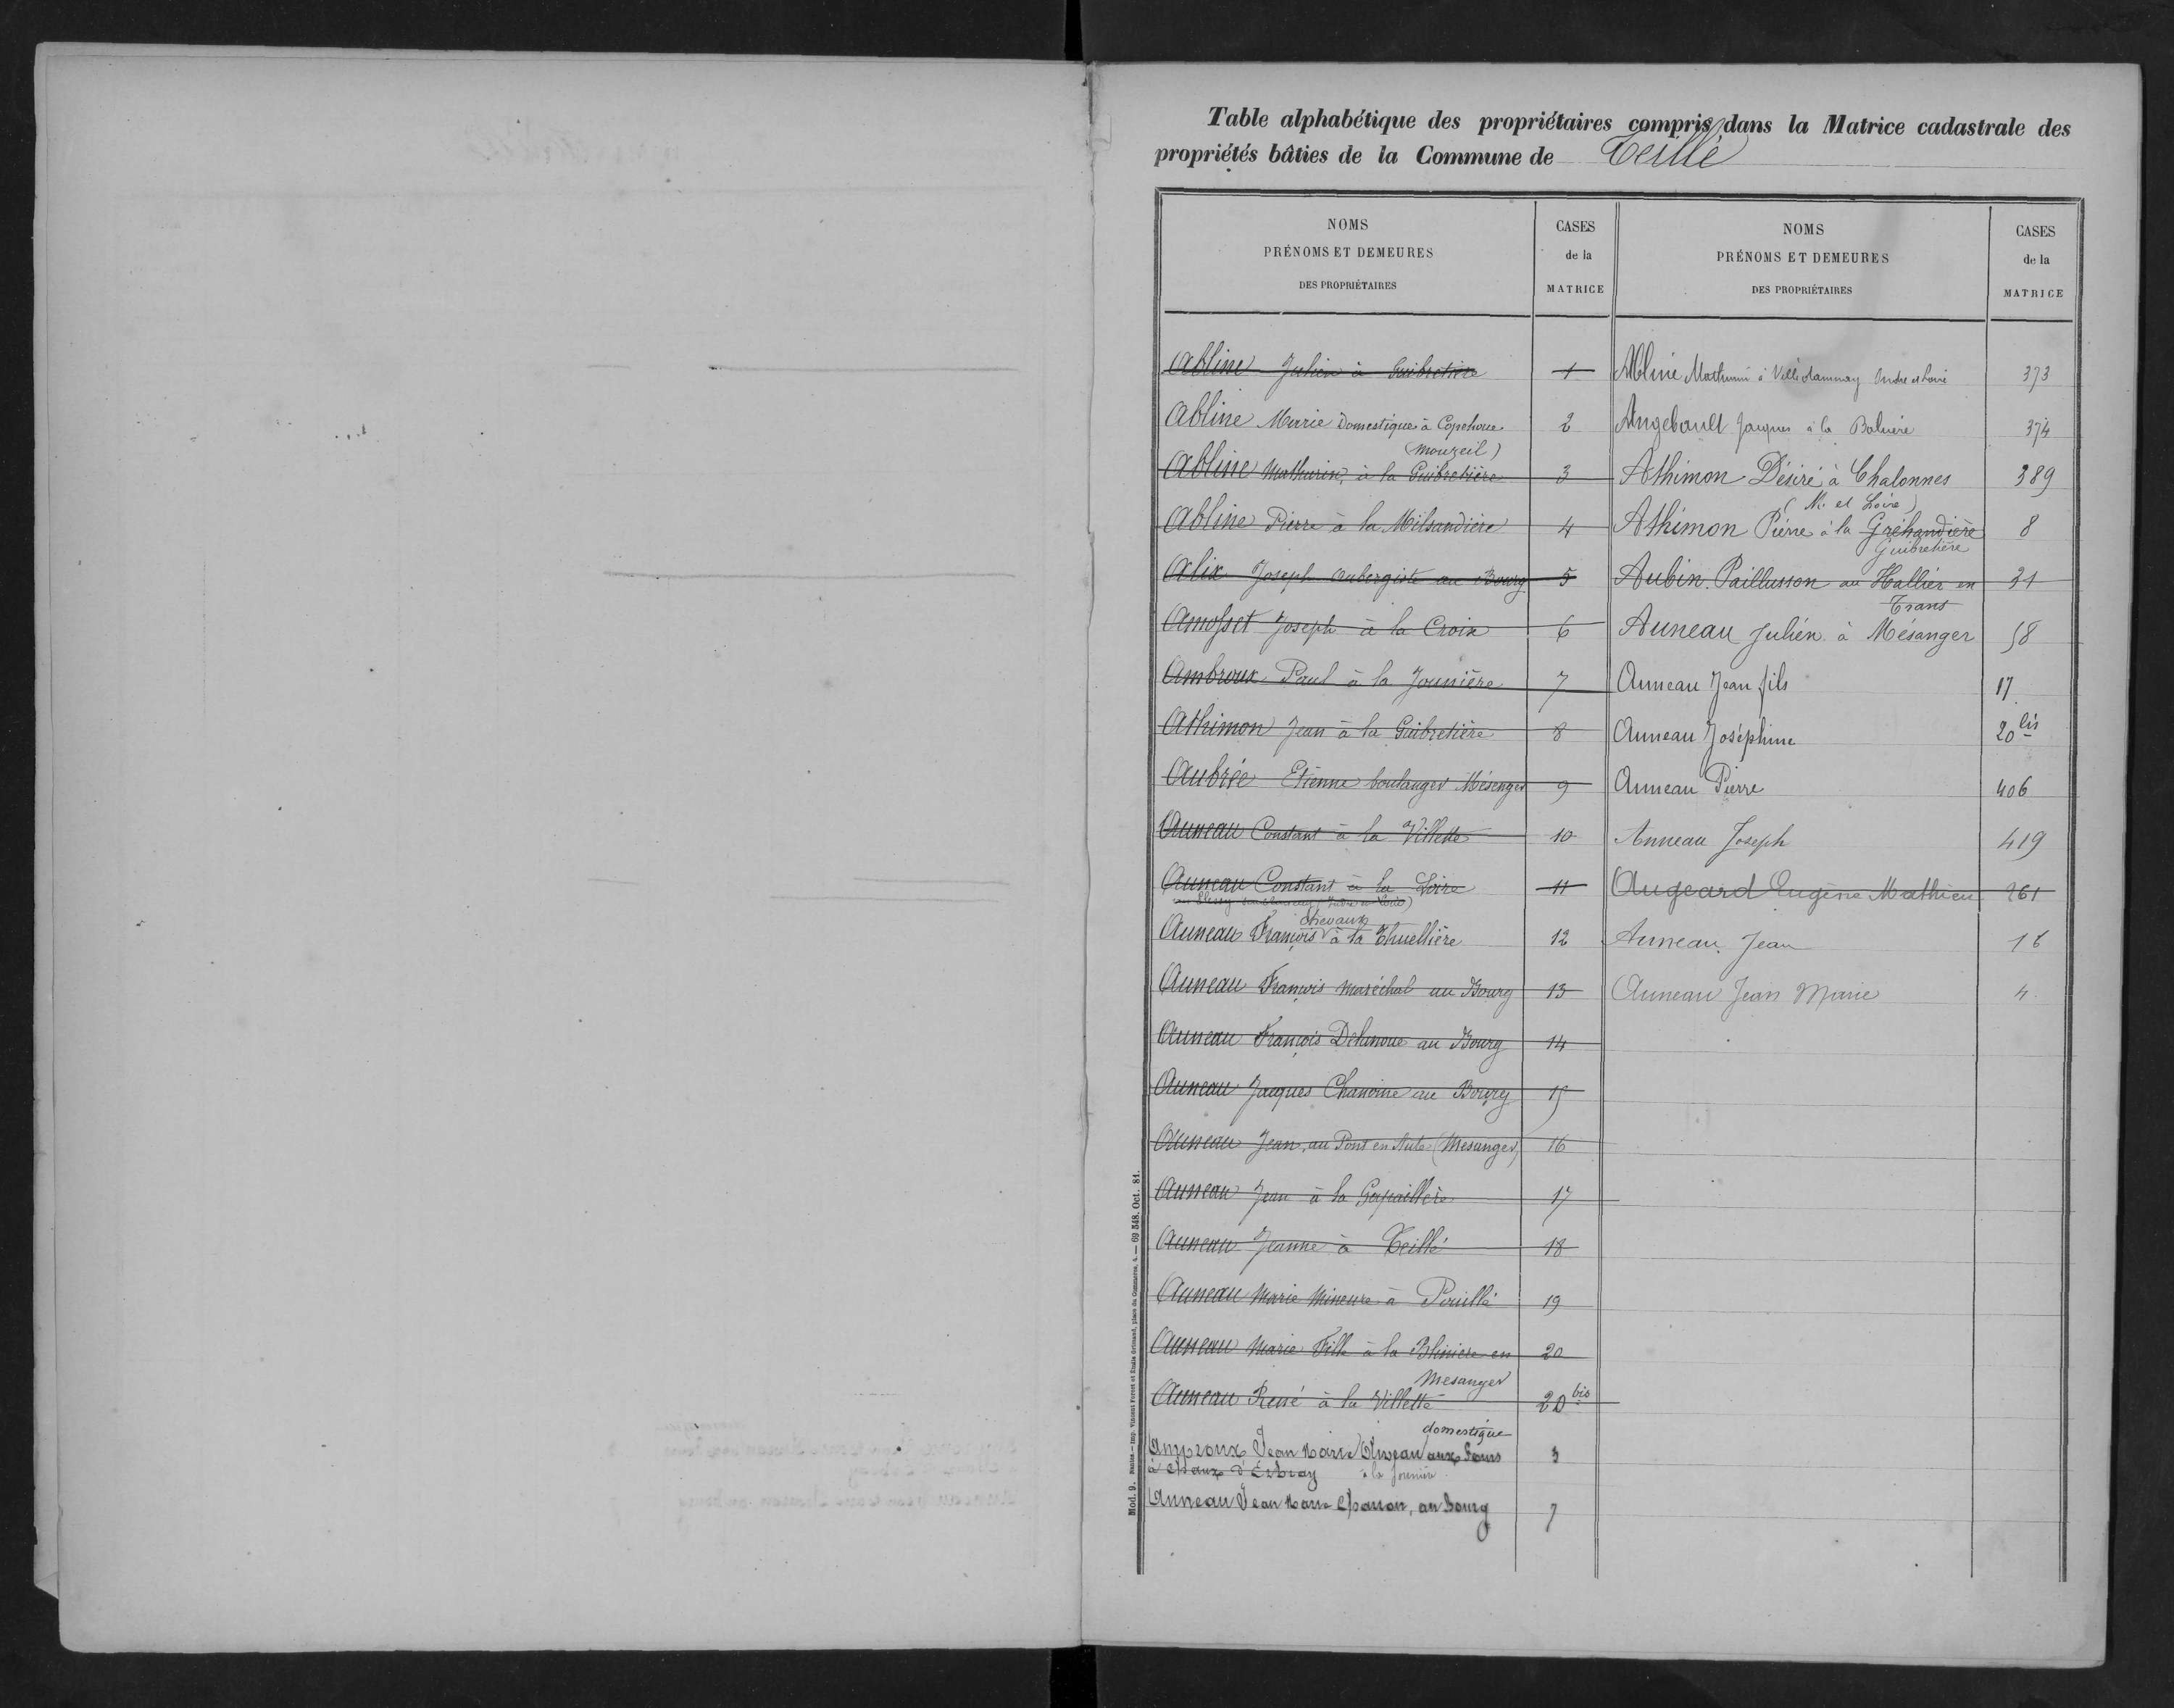 Table alphabétique des propriétaires compris dans la Matrice cadastrale des
propriétés bâties de la Commune de Teillé
NOMS
PRÉNOMS ET DEMEURES
DES PROPRIÉTAIRES
CASES
de la
MATRICE
NOMS
PRÉNOMS ET DEMEURES
DES PROPRIÉTAIRES
CASES
de la
MATRICE
Abline Julien à Guibretière 1
Abline Marie Domestique à Copehoue 2
(Mouzeil)
Abline Mathurin, à la Guibretière 3
Abline Pierre à la Milsandière 4
Alix Joseph aubergiste au Bourg 5
Amosset Joseph à la Croix 6
Ambroux Paul à la Jounière 7
Athimon Jean à la Guibretière 8
Aubrée Etienne boulanger Mésenger 9
Auneau Constant à la Villette 10
Auneau Constant à la Loire 11
(Indre et Loire)
chevaux
Auneau François à la Thuellière 12
Auneau François maréchal au Bourg 13
Auneau François Delanoue au Bourg 14
Auneau Jacques Chanoine au Bourg 15
Auneau Jean, au Pont en (Mesanger) 16
Auneau Jean à la 17
Auneau Jeanne à Teillé 18
Auneau Marie Mineure à Pouillé 19
Auneau Marie Fille à la Blinière en 20
Mesanger
Auneau René à la Villette 20 bis
domestique
Amproux Jean Marie aux 3
à la Jounière
Auneau Jean Marie au Bourg 7
Abline Mathurin à Indre et Loire 373
Angebault Jacques à la 374
Athimon Désiré à Chalonnes 389
(M. et Loire)
Athimon Pierre à la Gréhandière 8
Guibretière
Aubin Paillusson au Hallier en 31
Trans
Auneau Julien à Mésanger 58
Auneau Jean fils 17
Auneau Joséphine 20 bis
Auneau Pierre 406
Auneau Joseph 419
Augeard Eugène Mathieu 261
Auneau Jean 16
Auneau Jean Marie 4
Mod. 9. Nantes.—Imp. Vincent Forest et Émile Grimaud, place du Commerce, 4. — 69 348. Oct. 81.